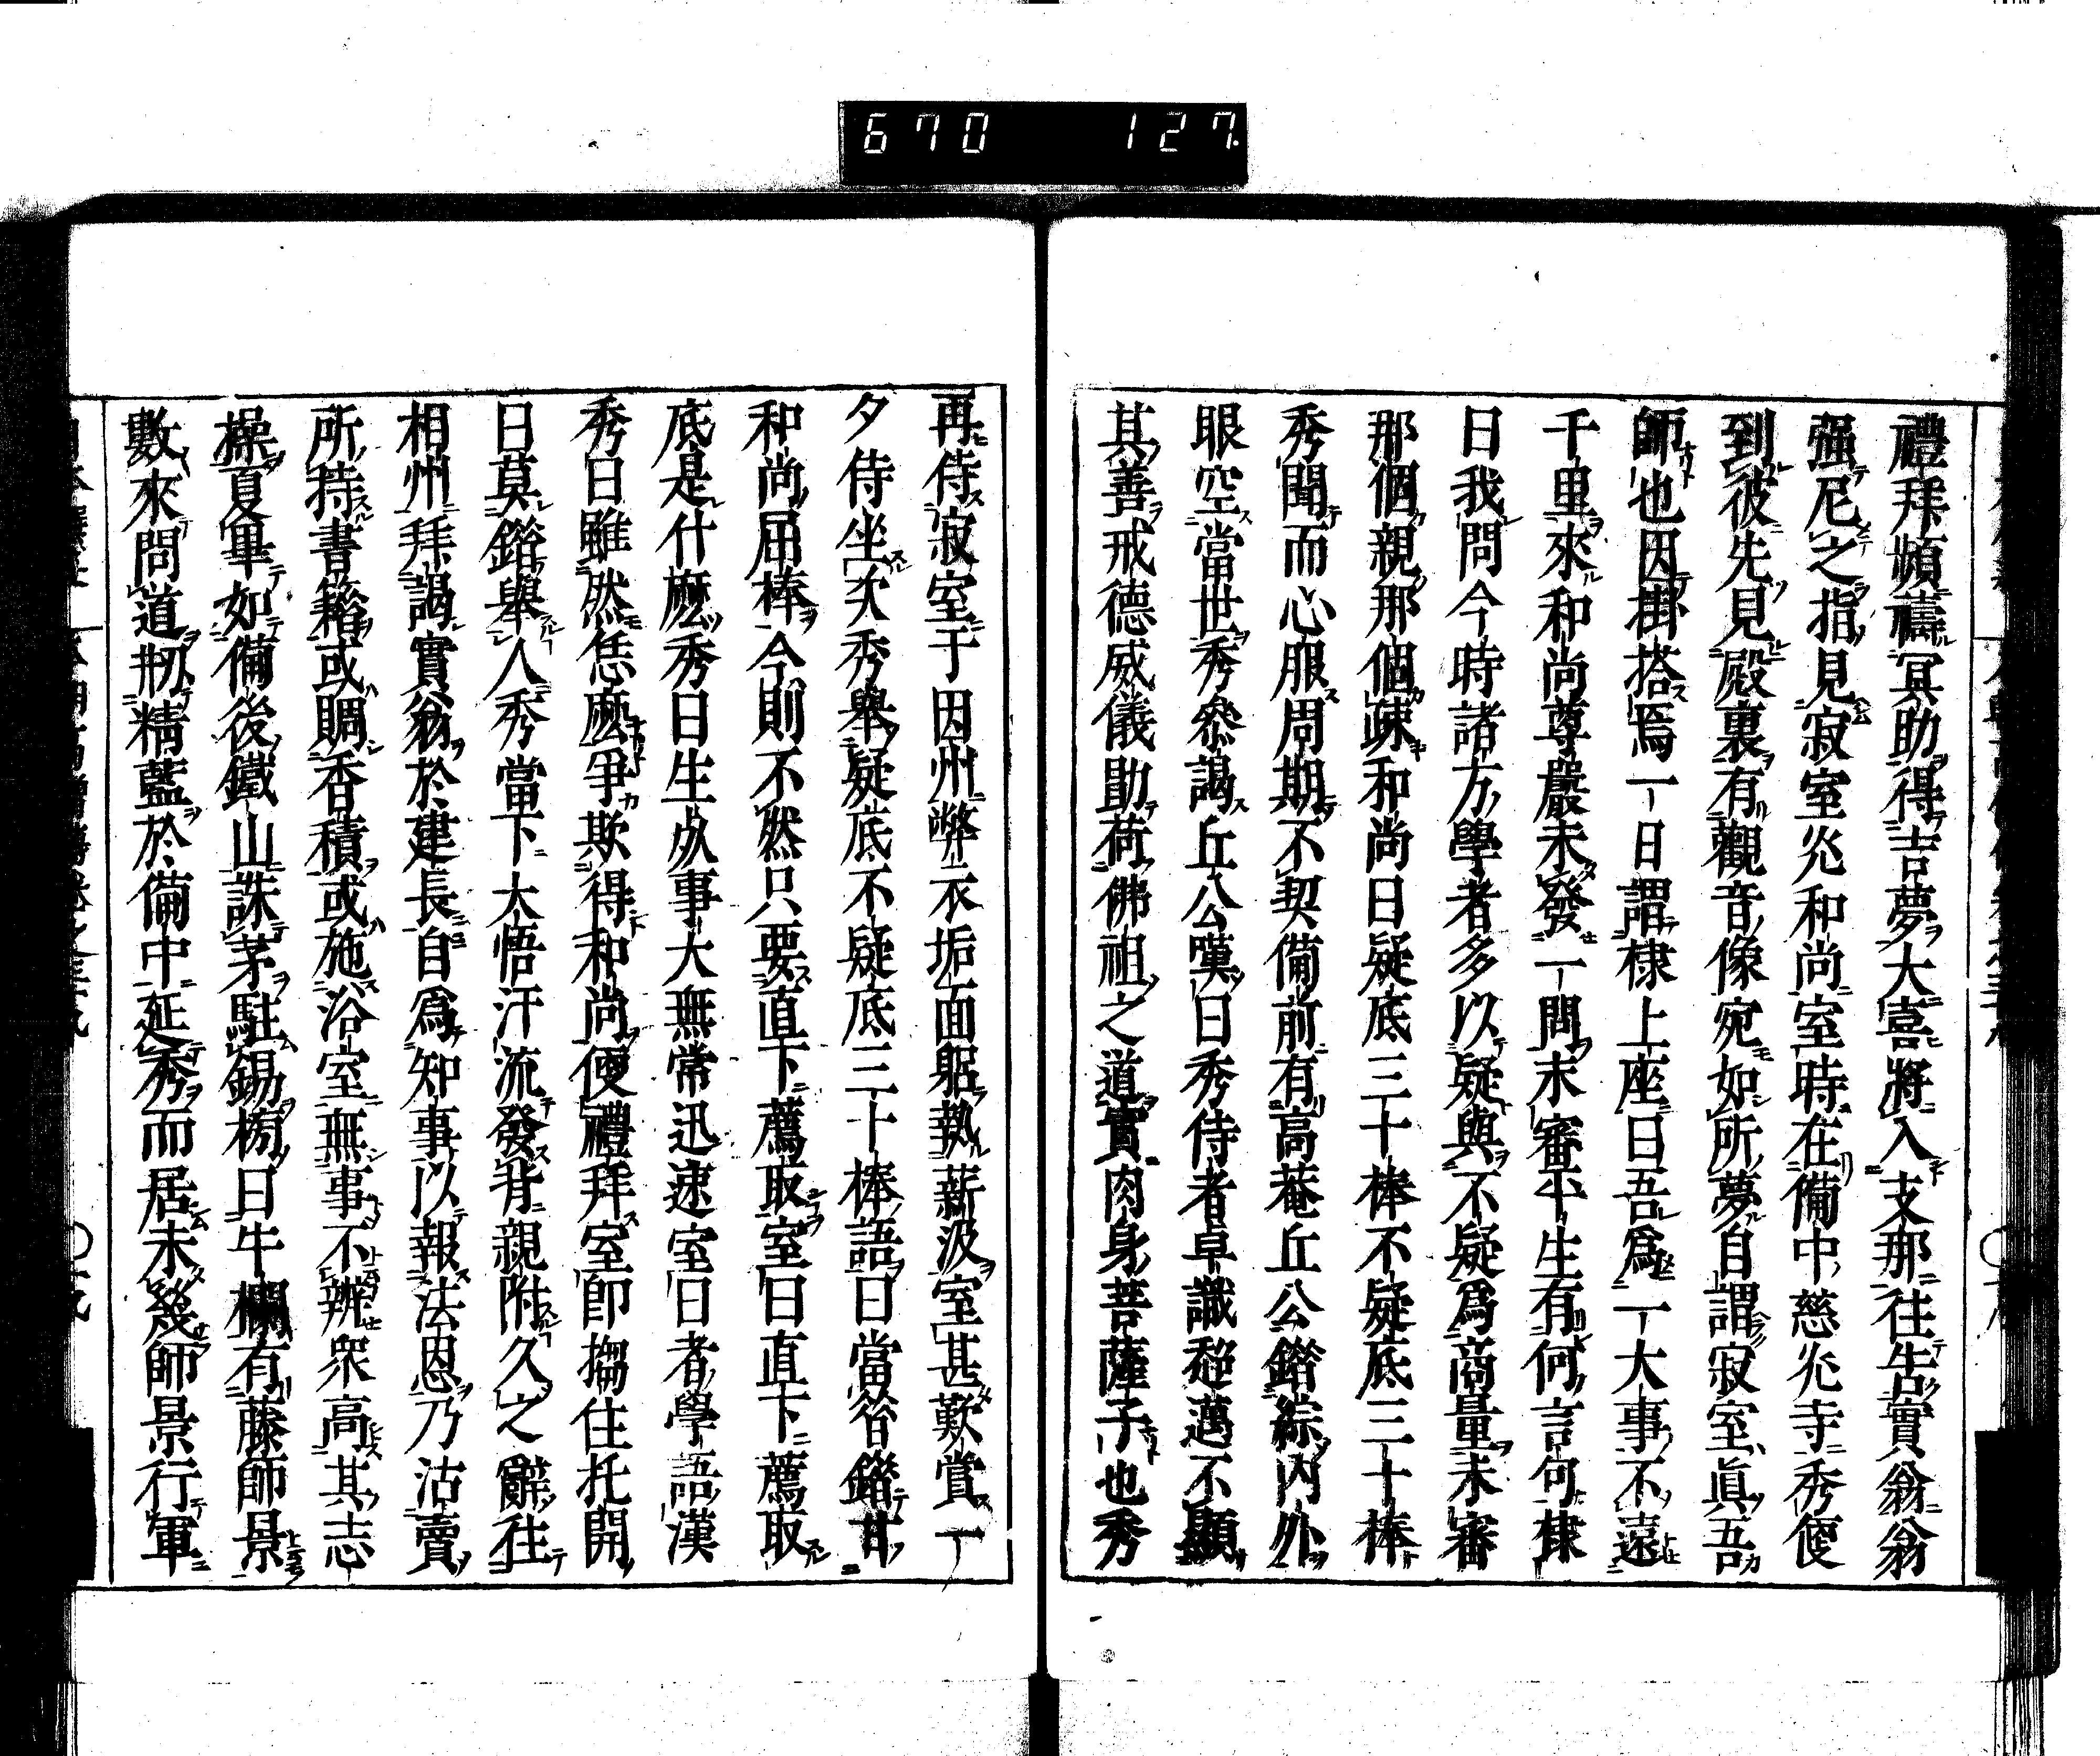 670 127.
禮拜頻禱冥助得吉夢大喜將入支那往告實翁翁
强尼之指見寂室光和尚室時在備中慈光寺秀便
到彼先見殿裏有觀音像宛如所夢自謂寂室眞吾
師也因掛搭焉一日謂棣上座曰吾爲一大事不遠
千里來和尚尊嚴未發一問未審平生有何言句棣
曰我問今時諸方學者多以疑與不疑爲商量未審
那個親那個疎和尚曰疑底三十棒不疑底三十棒
秀聞而心服周期不契備前有高菴丘公鍇綜内外
眼空當世秀叅謁丘公嘆曰秀侍者卓識超邁不顯
其善戒德威儀助荷佛祖之道實肉身菩薩子也秀
再侍寂室于因州弊衣垢面躬執薪汲室甚歎賞一
夕侍坐次秀舉疑底不疑底三十棒語曰當答鍇甘
和尚屈棒今則不然只要直下薦取室曰直下薦取
底是什麽秀曰生死事大無常迅速室曰者學語漢
秀曰雖然恁麽爭欺得和尚便禮拜室即搊住托開
曰莫鍇舉人秀當下大悟汗流發背親附久之辭往
相州拜謁實翁於建長自爲知事以報法恩乃沽賣
所持書籍或賙香積或施浴室無事不辨衆高其志
操夏畢如備後鐵山誅茅駐錫榜曰牛欄有藤師景
數來問道剏精藍於備中延秀而居未幾師景行軍